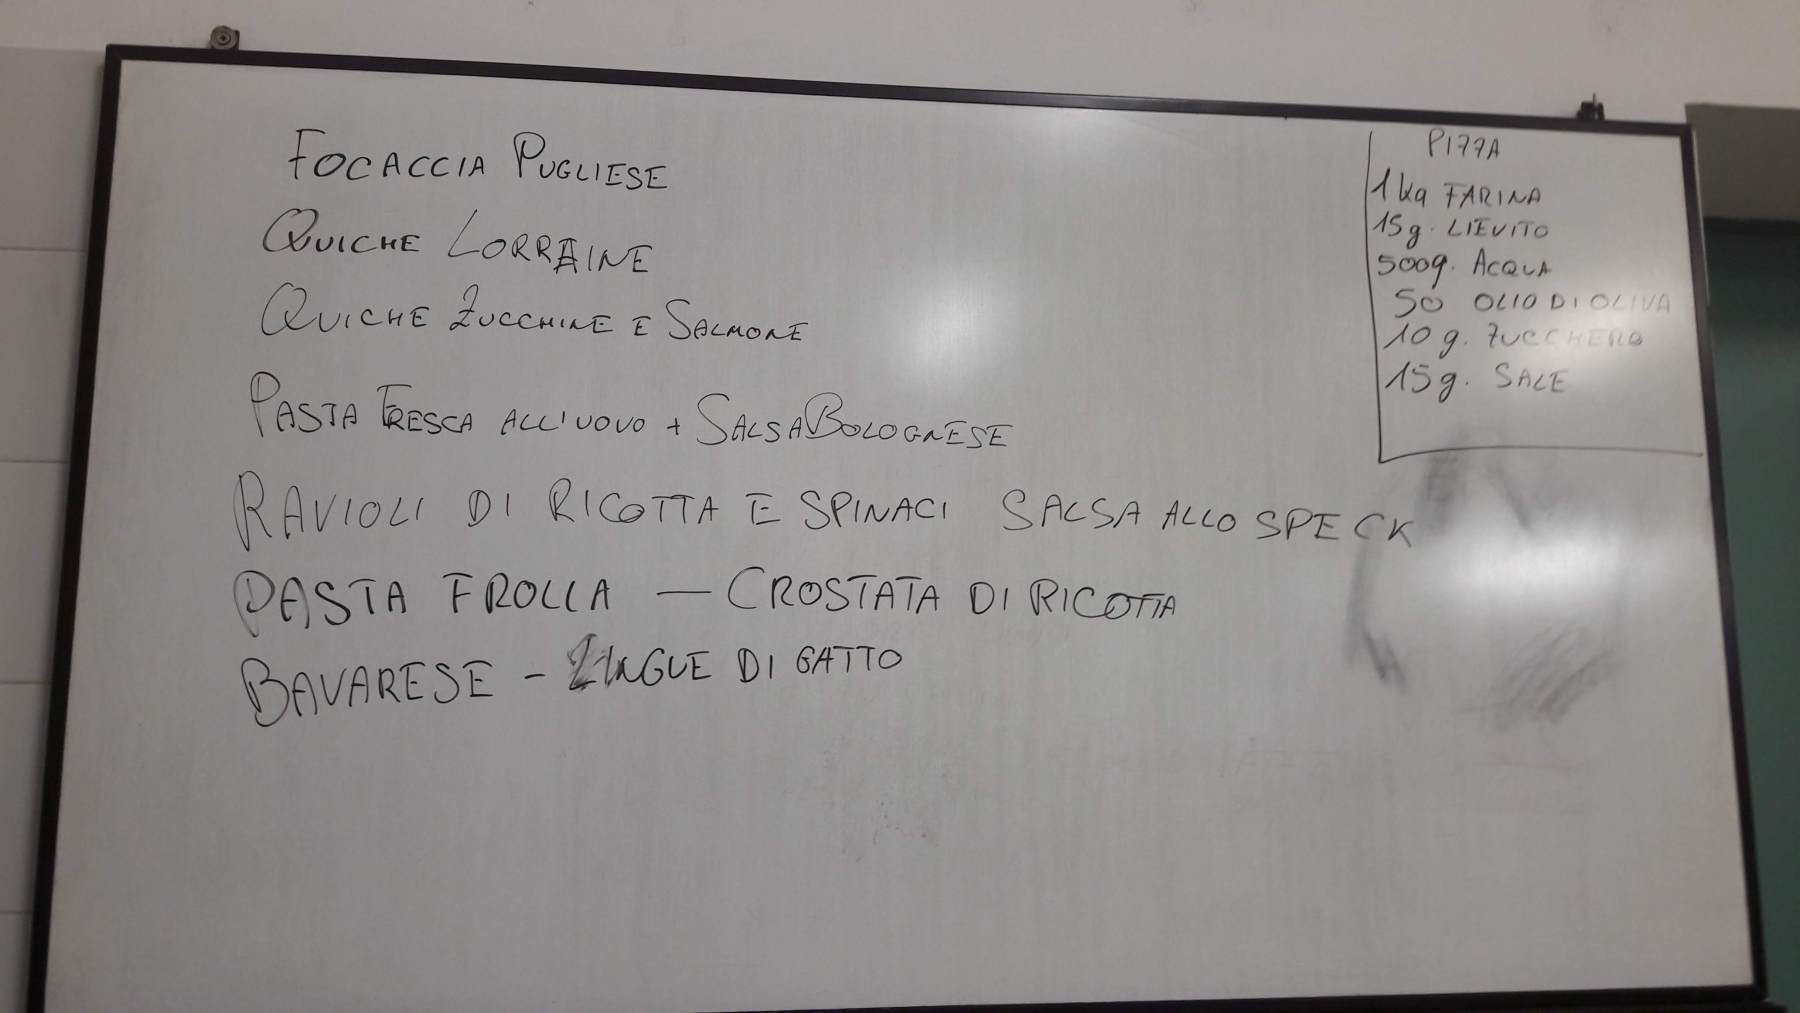 FOCACCIA PUGLIESE
QUICHE LORRAINE
QUICHE ZUCCHINE E SALMONE
PASTA FRESCA ALL'UOVO + SALSA BOLOGNESE
RAVIOLI DI RICOTTA E SPINACI SALSA ALLO SPECK
PASTA FROLLA — CROSTATA DI RICOTTA
BAVARESE - LINGUE DI GATTO
PIZZA
1 kg FARINA
15g. LIEVITO
500g. ACQUA
50 OLIO DI OLIVA
10 g. ZUCCHERO
15g. SALE